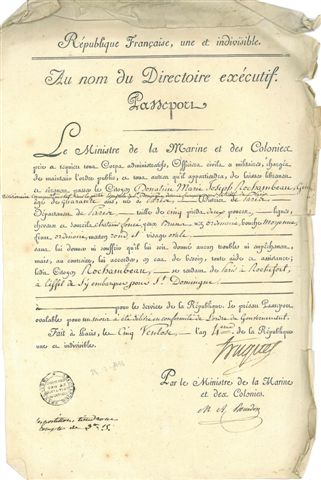 République Française, une et indivisible.
Au nom du Directoire exécutif.
Passeport
Le Ministre de la Marine et des Colonies
prie et requiert tous Corps administratifs, Officiers civils et militaires, chargés
de maintenir l'ordre public, et tous autres qu'il appartiendra, de laisser librement
passer le Citoyen Donatien Marie Joseph Rochambeau,
âgé de quarante ans, né à Paris District de Paris
Département de Paris taille de cinq pieds deux pouces, lignes,
cheveux et sourcils chatain yeux Bruns nez ordinaire, bouche moyenne,
menton rond et visage ovale
sans lui donner ni souffrir qu'il lui soit donné aucun trouble ni empêchement,
mais, au contraire, lui accorder, en cas de besoin, toute aide et assistance;
ledit Citoyen Rochambeau, se rendant de Paris à Rochefort,
à l'effet de s'y embarquer pour St. Domingue
pour les services de la République. Le présent Passeport
valable pour
Fait à Paris, le Cinq Ventose, l'an 4eme de la République
une et indivisible.
Truguet
Par le Ministre de la Marine
et des Colonies.